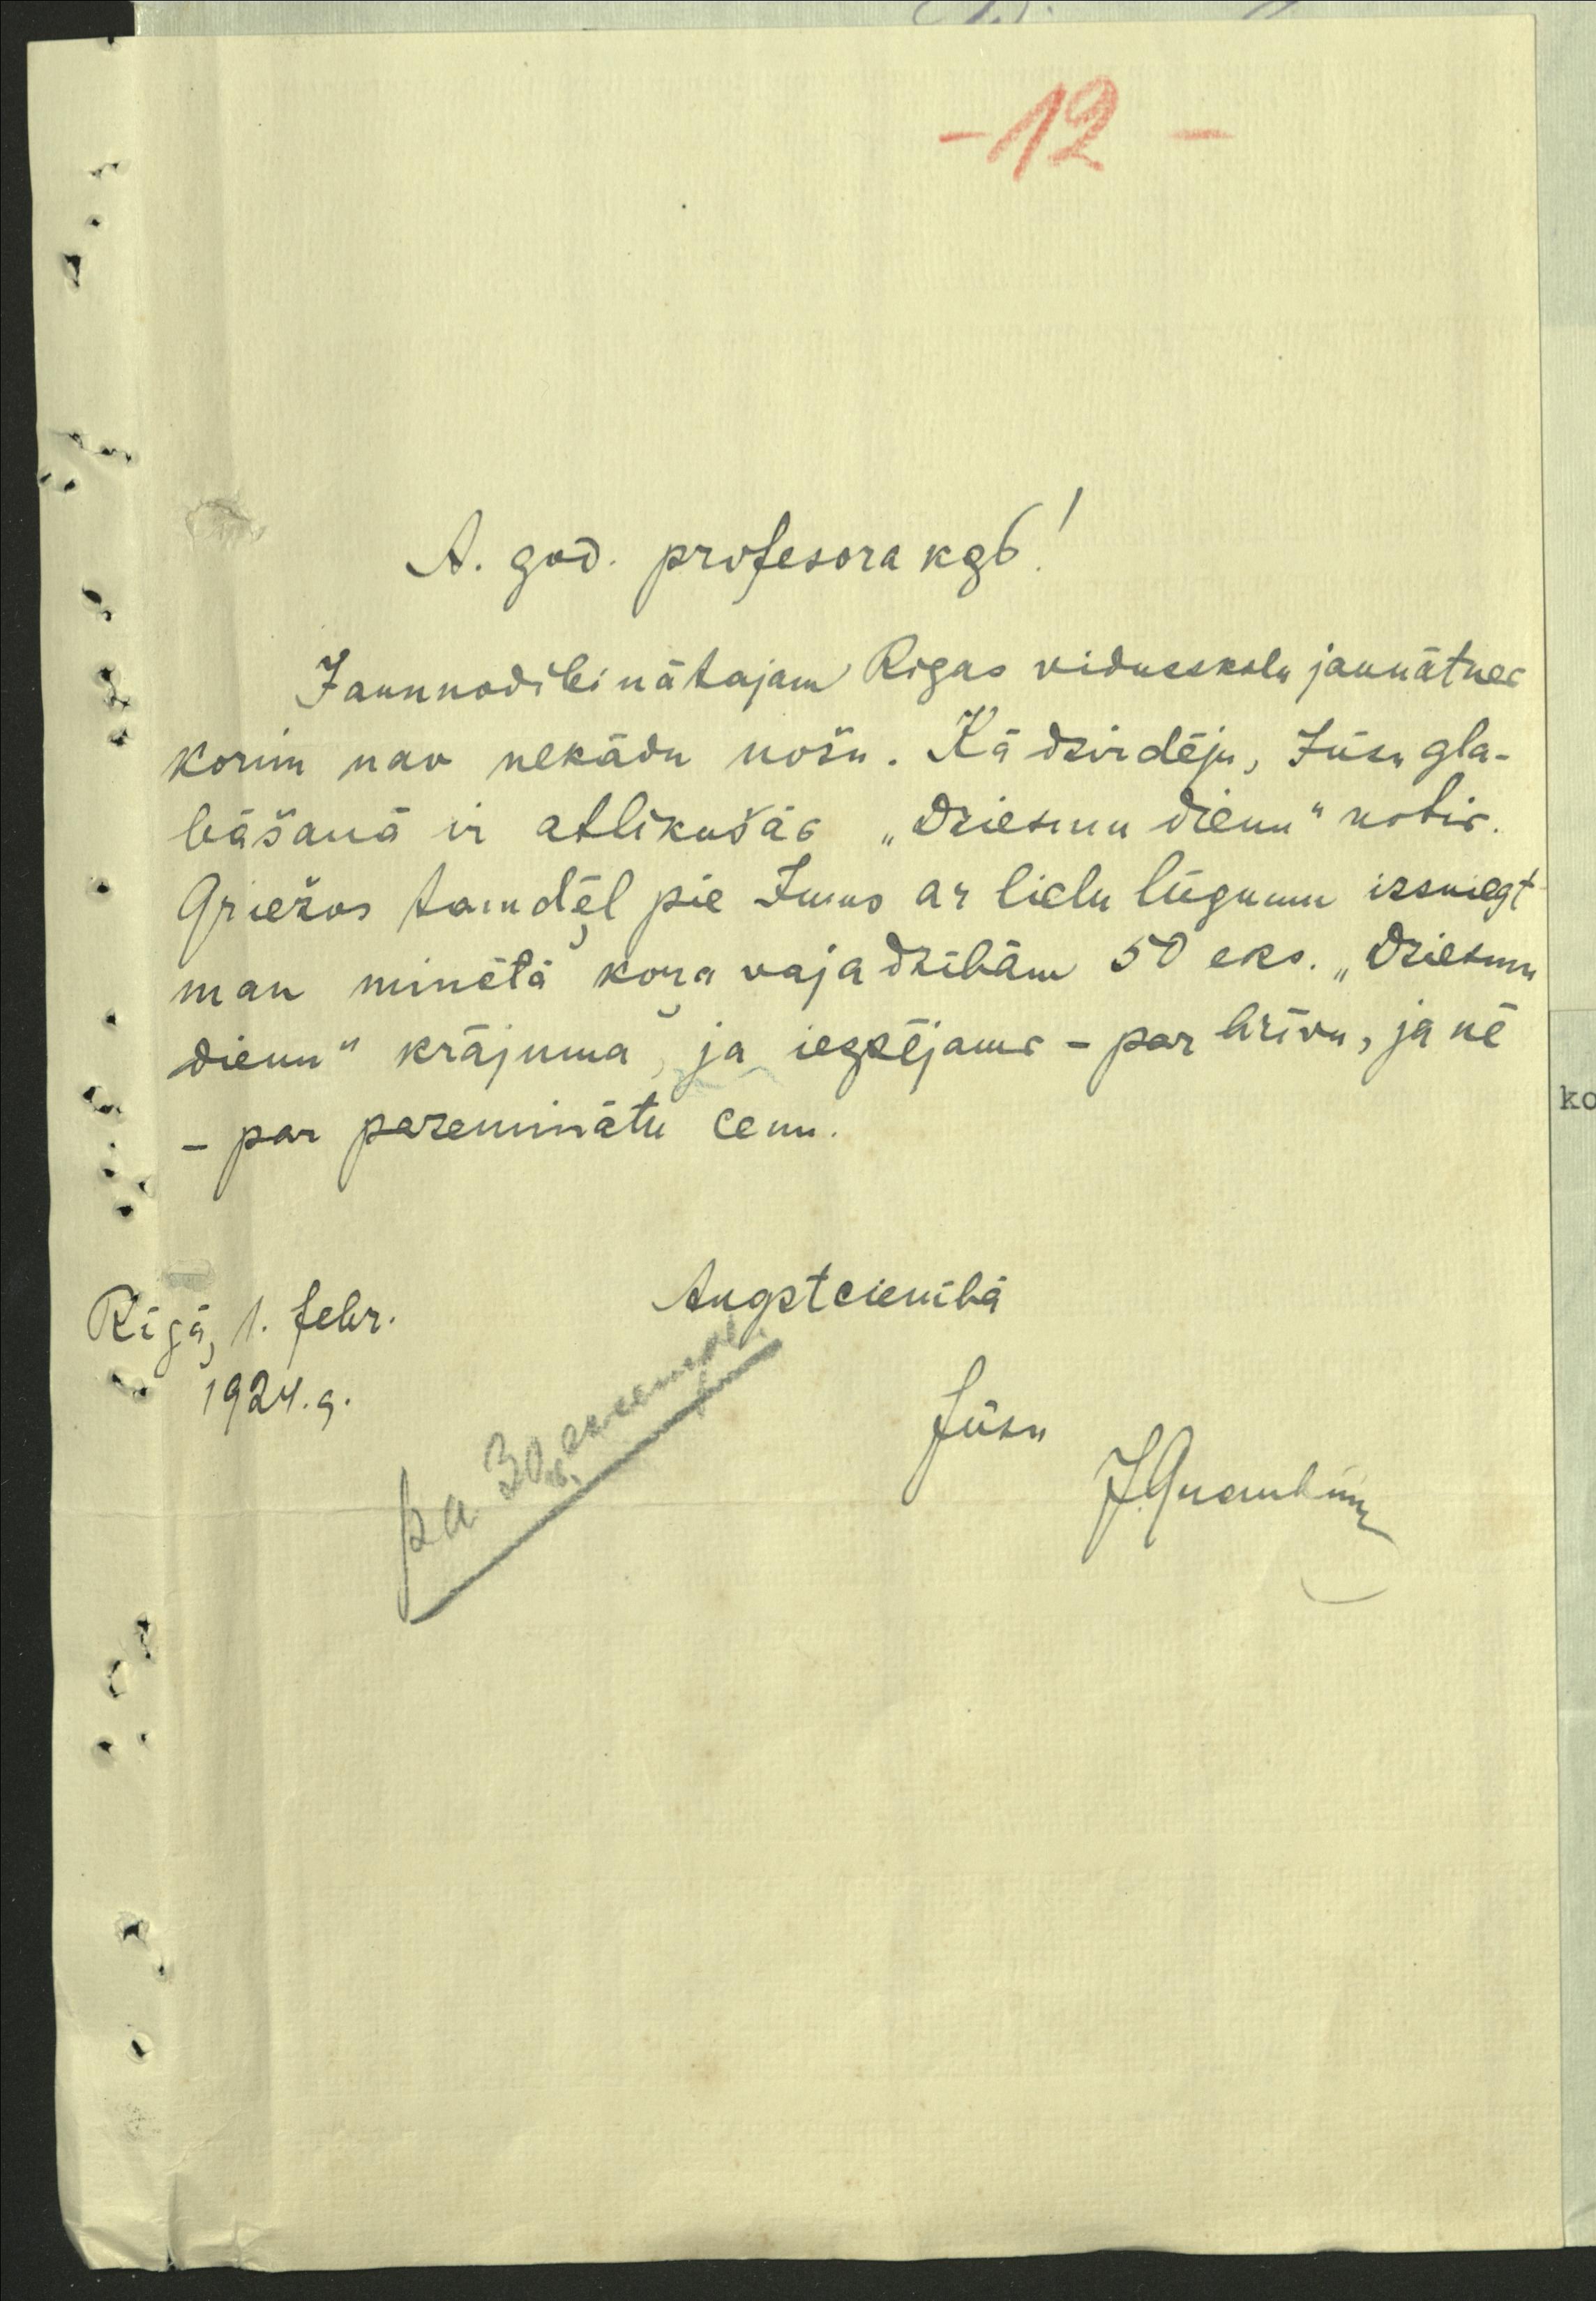 - 12 -
A. god. profesora kgs!
Jaunnodibinātajam Rīgas vidusskolu jaunātnes
korim nav nekādu nošu. Kā dzirdēju, Jūsu gla-
bāšanā ir atlikušās „Dziesmu dienu" notis.
Griežos tamdēļ pie Jums ar lielu lūgumu izsniegt
man minētā koŗa vajadzībām 50 eks. „Dziesmu
dienu" krājuma, ja iespējams - par brīvu, ja nē
- par pazeminātu cenu.
Augstcienībā
Rīgā, 1. febr.
1924. g.
Jūsu
pa 30
ko